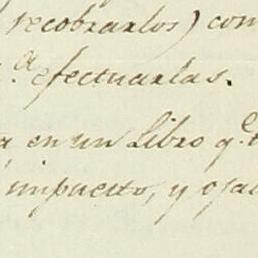 recobrarlos) com
efectuarlas.
en un Libro q.e
impuesto, y ojal